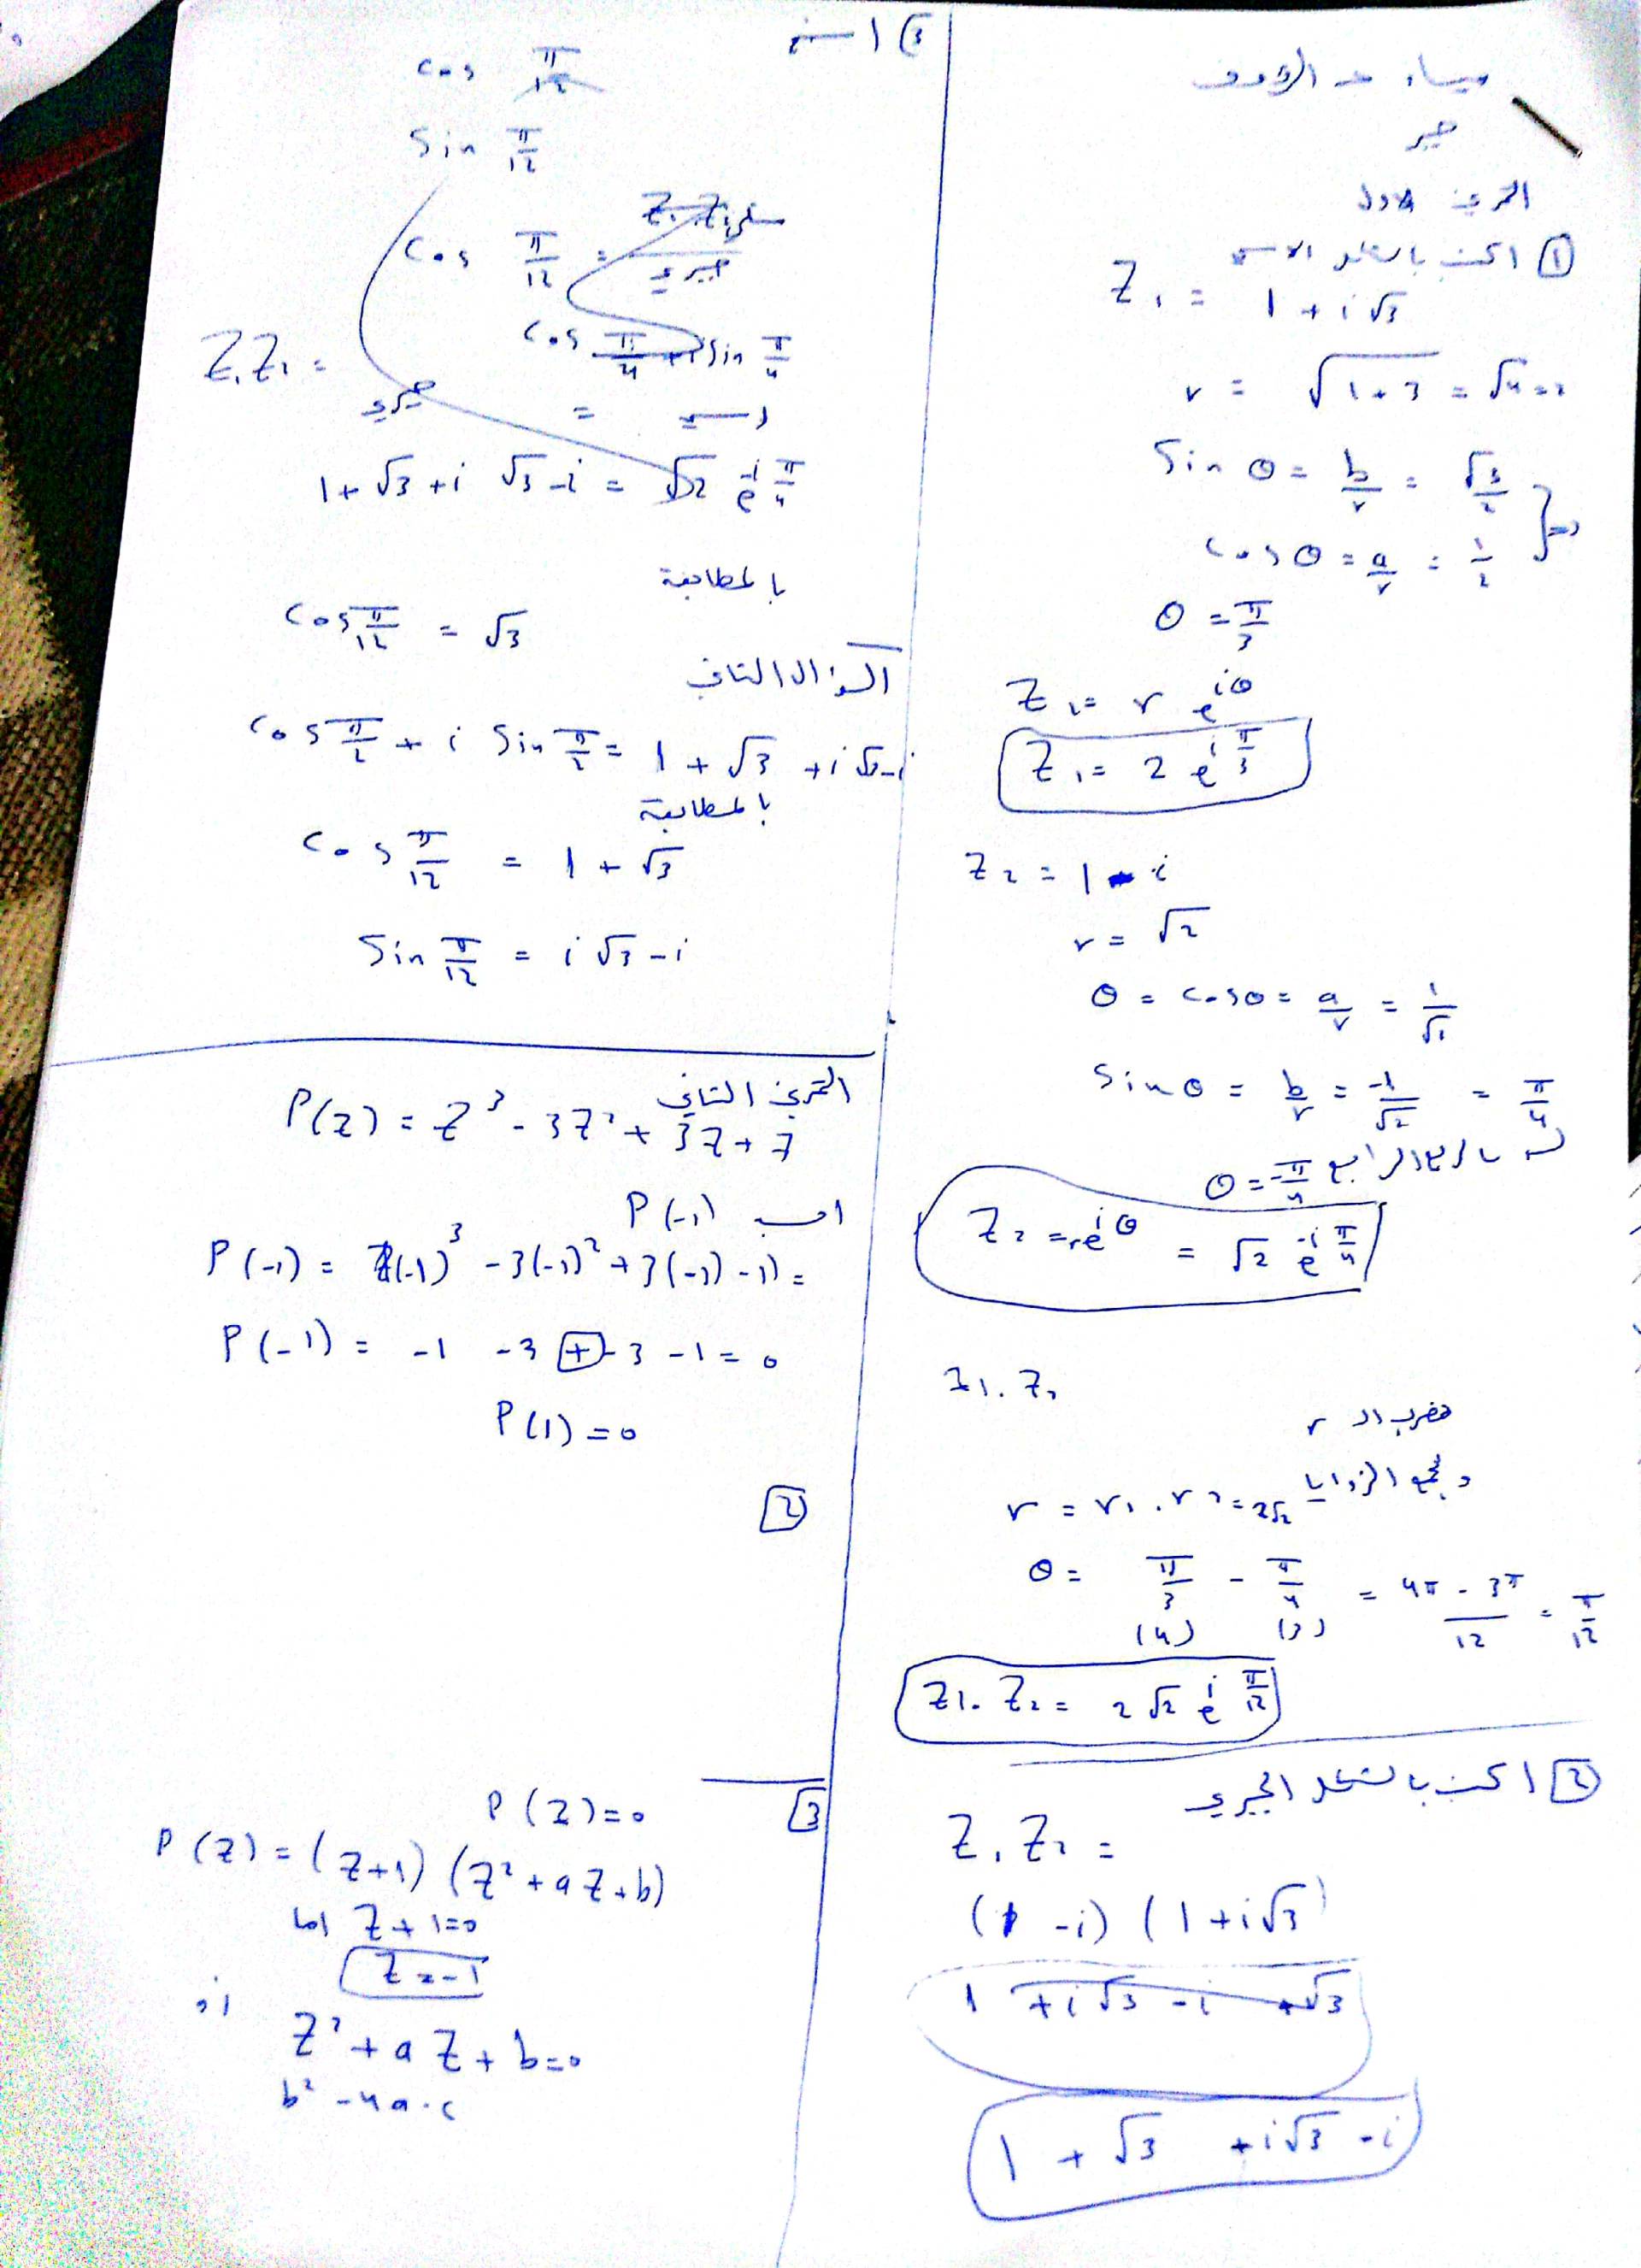 التمرين الاول
① اكتب بالشكل الاسي
Z₁ = 1 + i√3
r = √1+3 = √4 = 2
Sin θ = b/r = √3/2
cos θ = a/r = 1/2
θ = π/3
Z₁ = r e^iθ
Z₁ = 2 e^i π/3
Z₂ = 1 - i
r = √2
θ = cos θ = a/r = 1/√2
Sin θ = b/r = -1/√2 = π/4
بالربع الرابع θ = -π/4
Z₂ = r e^iθ = √2 e^-i π/4
Z1 . Z₂
نضرب الـ r
ونجمع الزوايا
r = r₁ . r₂ = 2√2
θ = π/3 - π/4 = 4π - 3π/12 = π/12
(4) (3)
Z1 . Z₂ = 2√2 e^i π/12
② اكتب بالشكل الجبري
Z₁ Z₂ =
(1 - i) (1 + i√3)
1 + i√3 - i + √3
1 + √3 + i√3 - i
cos π/12
Sin π/12
cos π/12 =
جبري
cos π/4 + i Sin π/4
Z₁ Z₂ =
جبري = اسي
1 + √3 + i √3 - i = √2 e^-i π/4
بالمطابقة
cos π/12 = √3
السؤال الثاني
cos π/2 + i Sin π/2 = 1 + √3 + i√3 - i
بالمطابقة
cos π/12 = 1 + √3
Sin π/12 = i√3 - i
التمرين الثاني
P(z) = Z³ - 3Z² + 3Z + 7
احسب P(-1)
P(-1) = (-1)³ - 3(-1)² + 3(-1) - 1) =
P(-1) = -1 -3 + -3 -1 = 0
P(1) = 0
2
3
P(Z) = 0
P(Z) = (Z+1) (Z² + aZ + b)
اما Z + 1 = 0
Z = -1
او
Z² + a Z + b = 0
b² - 4a.c